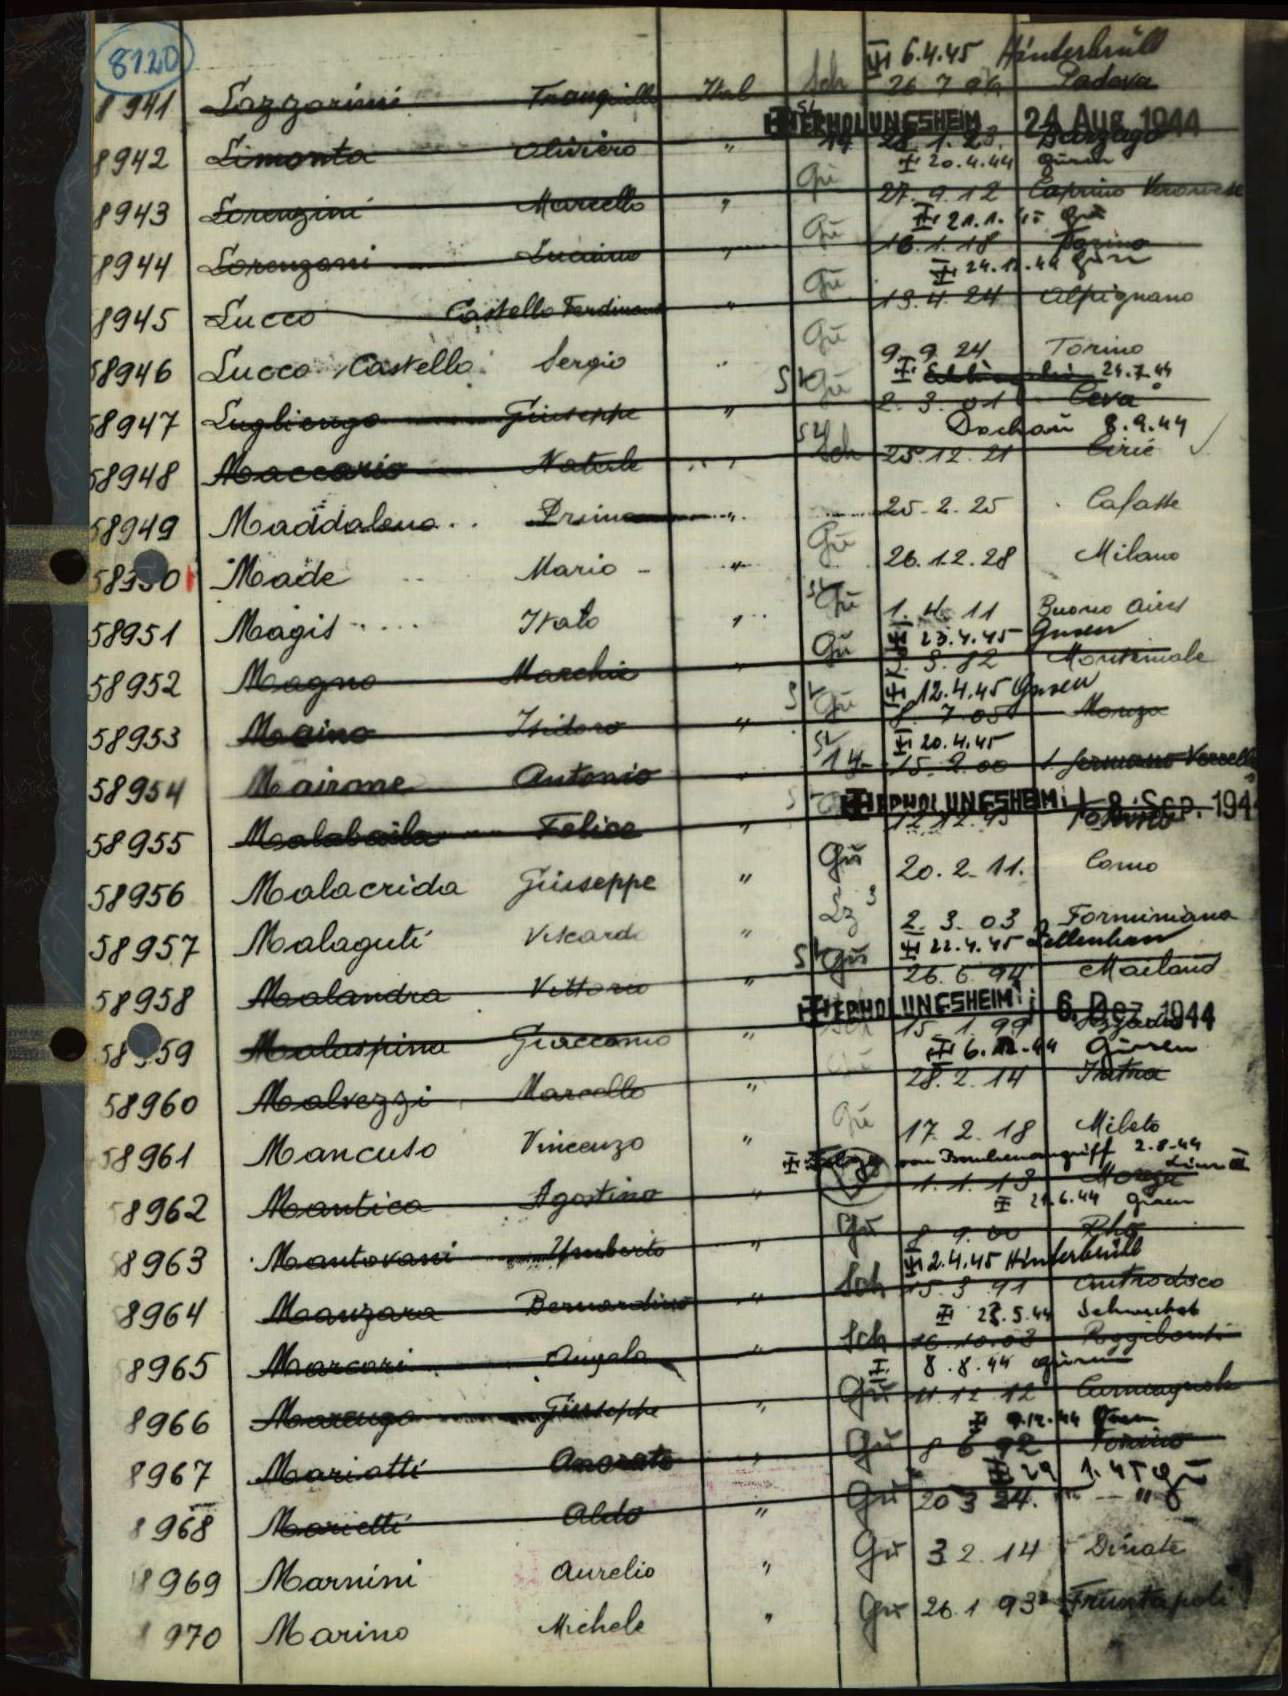 8120
6.4.45 Hinterbrüll
8941 Lazzarini Tranquillo Ital Sch 26 7 96 Padova
ERHOLUNGSHEIM 24 Aug 1944
8942 Limonta Oliviero " 14 28. 1. 23. Barzago
20.4.44 Gusen
8943 Lorenzini Marcello " Gu 27. 9. 12 Caprino Veronese
21.1.45 Gu
8944 Lorenzoni Luciano " Gu 16. 1. 18 Torino
24.12.44 Gusen
8945 Lucco Castello Ferdinand " Gu 13. 4. 24 Alpignano
58946 Lucco Castello Sergio " Gu 9. 9. 24 Torino
24.7.44
58947 Lugliengo Giuseppe " Gu 2. 3. 01 Ceva
Dachau 8.9.44
58948 Maccario Natale " Sch 25. 12. 21 Cirié
58949 Maddalena Primo " 25. 2. 25 Cafasse
58950 Made Mario " Gu 26. 12. 28 Milano
58951 Magis Italo " Gu 1. 4. 11 Buono Aires
23.4.45 Gusen
58952 Magno Marchie " Gu 82
12.4.45 Gusen
58953 Maino Isidoro " Gu 8. 7. 05 Monza
20.4.45
58954 Mairone Antonio " 14 15. 2. 00 S. Germano Vercelli
ERHOLUNGSHEIM 8. Sep. 194
58955 Malabaila Felice " 12 12. Torino
58956 Malacrida Giuseppe " Gu 20. 2. 11. Como
58957 Malaguti Viscardo " Lz 3 2. 3. 03 Formimiana
22.4.45 Zellenhan
58958 Malandra Vittorio " Gu 26. 6 94 Mailand
ERHOLUNGSHEIM 6. Dez. 1944
58959 Malaspina Giaccomo " 15. 1. 99
6. 12. 44 Gusen
58960 Malvezzi Marcello " Gu 28. 2. 14 Intra
58961 Mancuso Vincenzo " Gu 17. 2. 18 Mileto
von Bombenangriff 2.8.44
8962 Mantica Agostino " 1. 1. 13 Linz III
21.6.44 Gusen
8963 Mantovani Umberto " Gu 8 9. 00 Rho
2.4.45 Hinterbrüll
8964 Manzara Bernardino " Sch 15. 3 91 Antrodoco
5.44 Schwechat
8965 Marcari Angelo " Sch 16. 10. 03 Poggibonsi
8.8.44 Gusen
8966 Marengo Giuseppe " Gu 11. 12 12 Carmagnola
12.44 Gusen
8967 Mariatti Onorato " Gu 8 6 92 Torino
29 1.45 Gu
8968 Marietti Aldo " Gu 20 3 24. " — "
8969 Marnini Aurelio " Gu 3 2. 14 Dinate
970 Marino Michele " Gu 26. 1 93 Trinitapoli